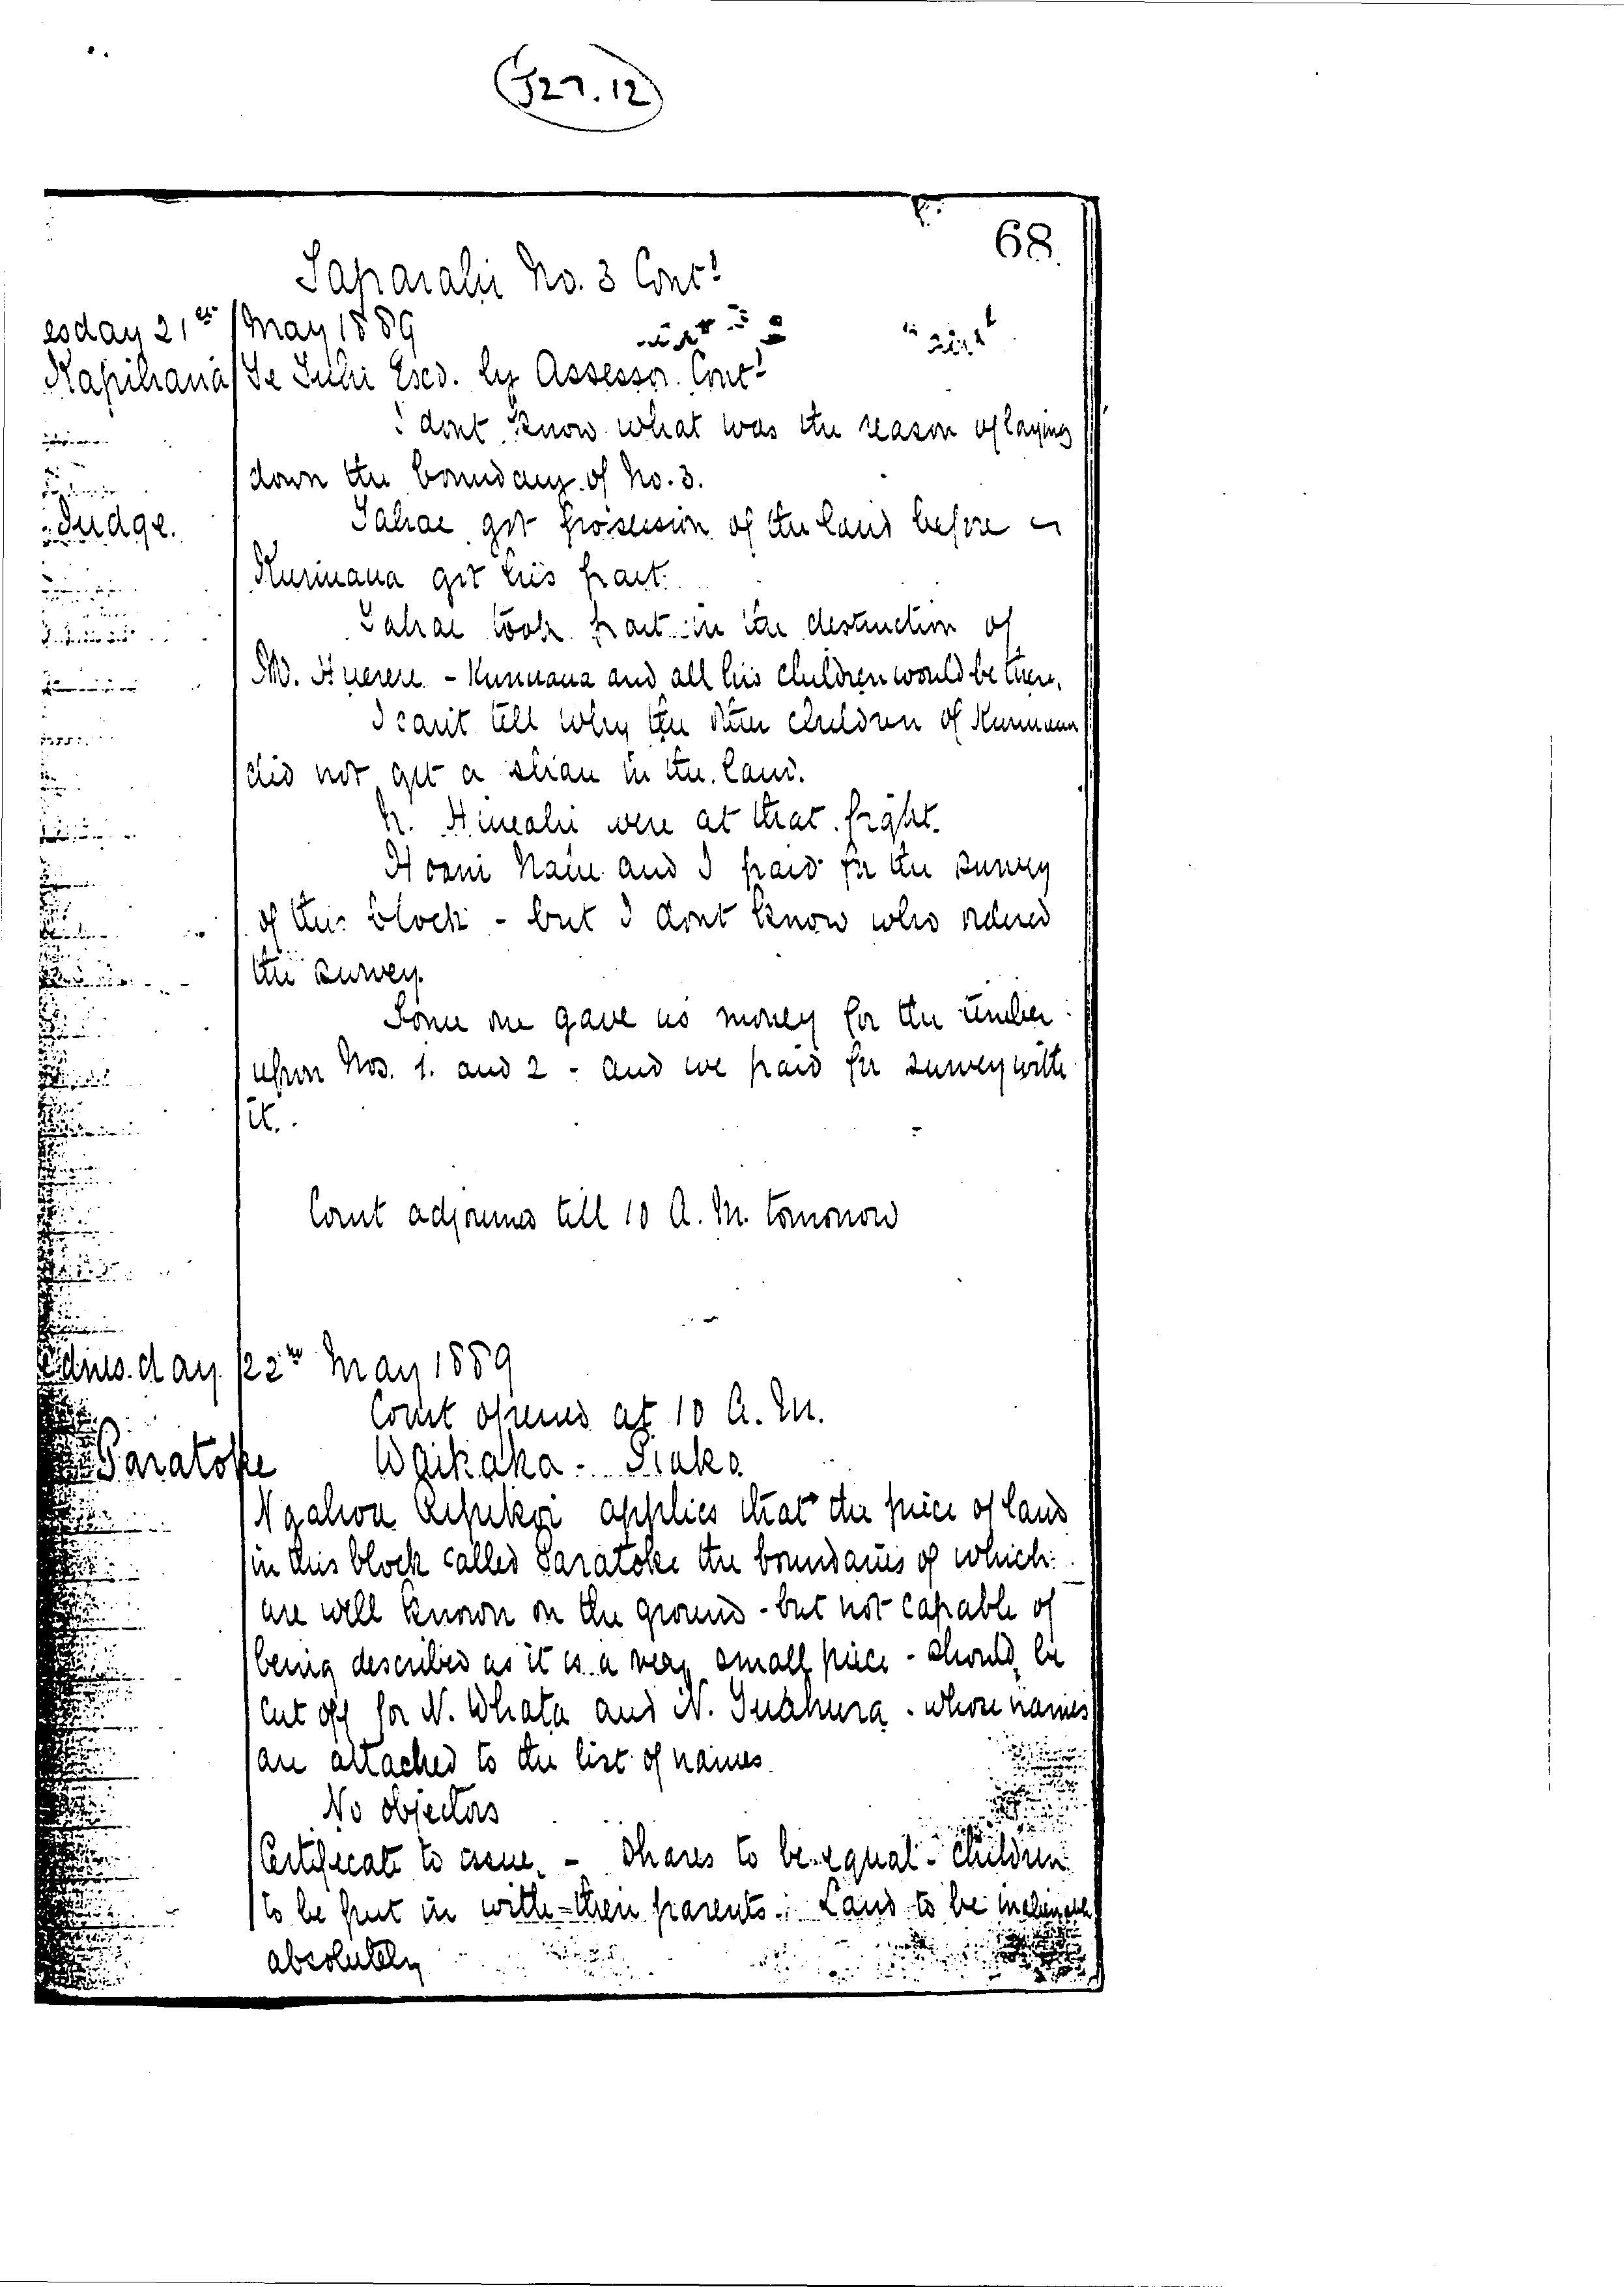 J27.12
68
Taparahi No. 3 Cont!
esday 21st May 1889
Kapihana Te Tuhi Exed. by Assessor. Cont!
I dont know what was the reason of laying
down the boundary of No. 3.
Judge. Tahae got possession of the land before
Kurinana got his part.
Tahae took part in the destruction of
N. Huerere - Kurinana and all his children would be there.
I cant tell why the other children of Kurinana
did not get a share in the land.
N. Hineahi were at that fight.
Hoani Nahe and I paid for the survey
of this block - but I dont know who ordered
the survey.
Some one gave us money for the timber
upon Nos. 1. and 2 - and we paid for survey with
it.
Court adjourned till 10 A.M. tomorrow
ednesday 22nd May 1889
Court opened at 10 A.M.
Paratoke Waikaka - Piako
Ngahoa applies that the piece of land
in this block called Paratoke the boundaries of which
are well known on the ground - but not capable of
being described as it is a very small piece - should be
cut off for N. Whata and N. Tuahura - whose names
are attached to the list of names.
No objectors
Certificate to issue. - Shares to be equal - children
to be put in with their parents. Land to be inalienable
absolutely